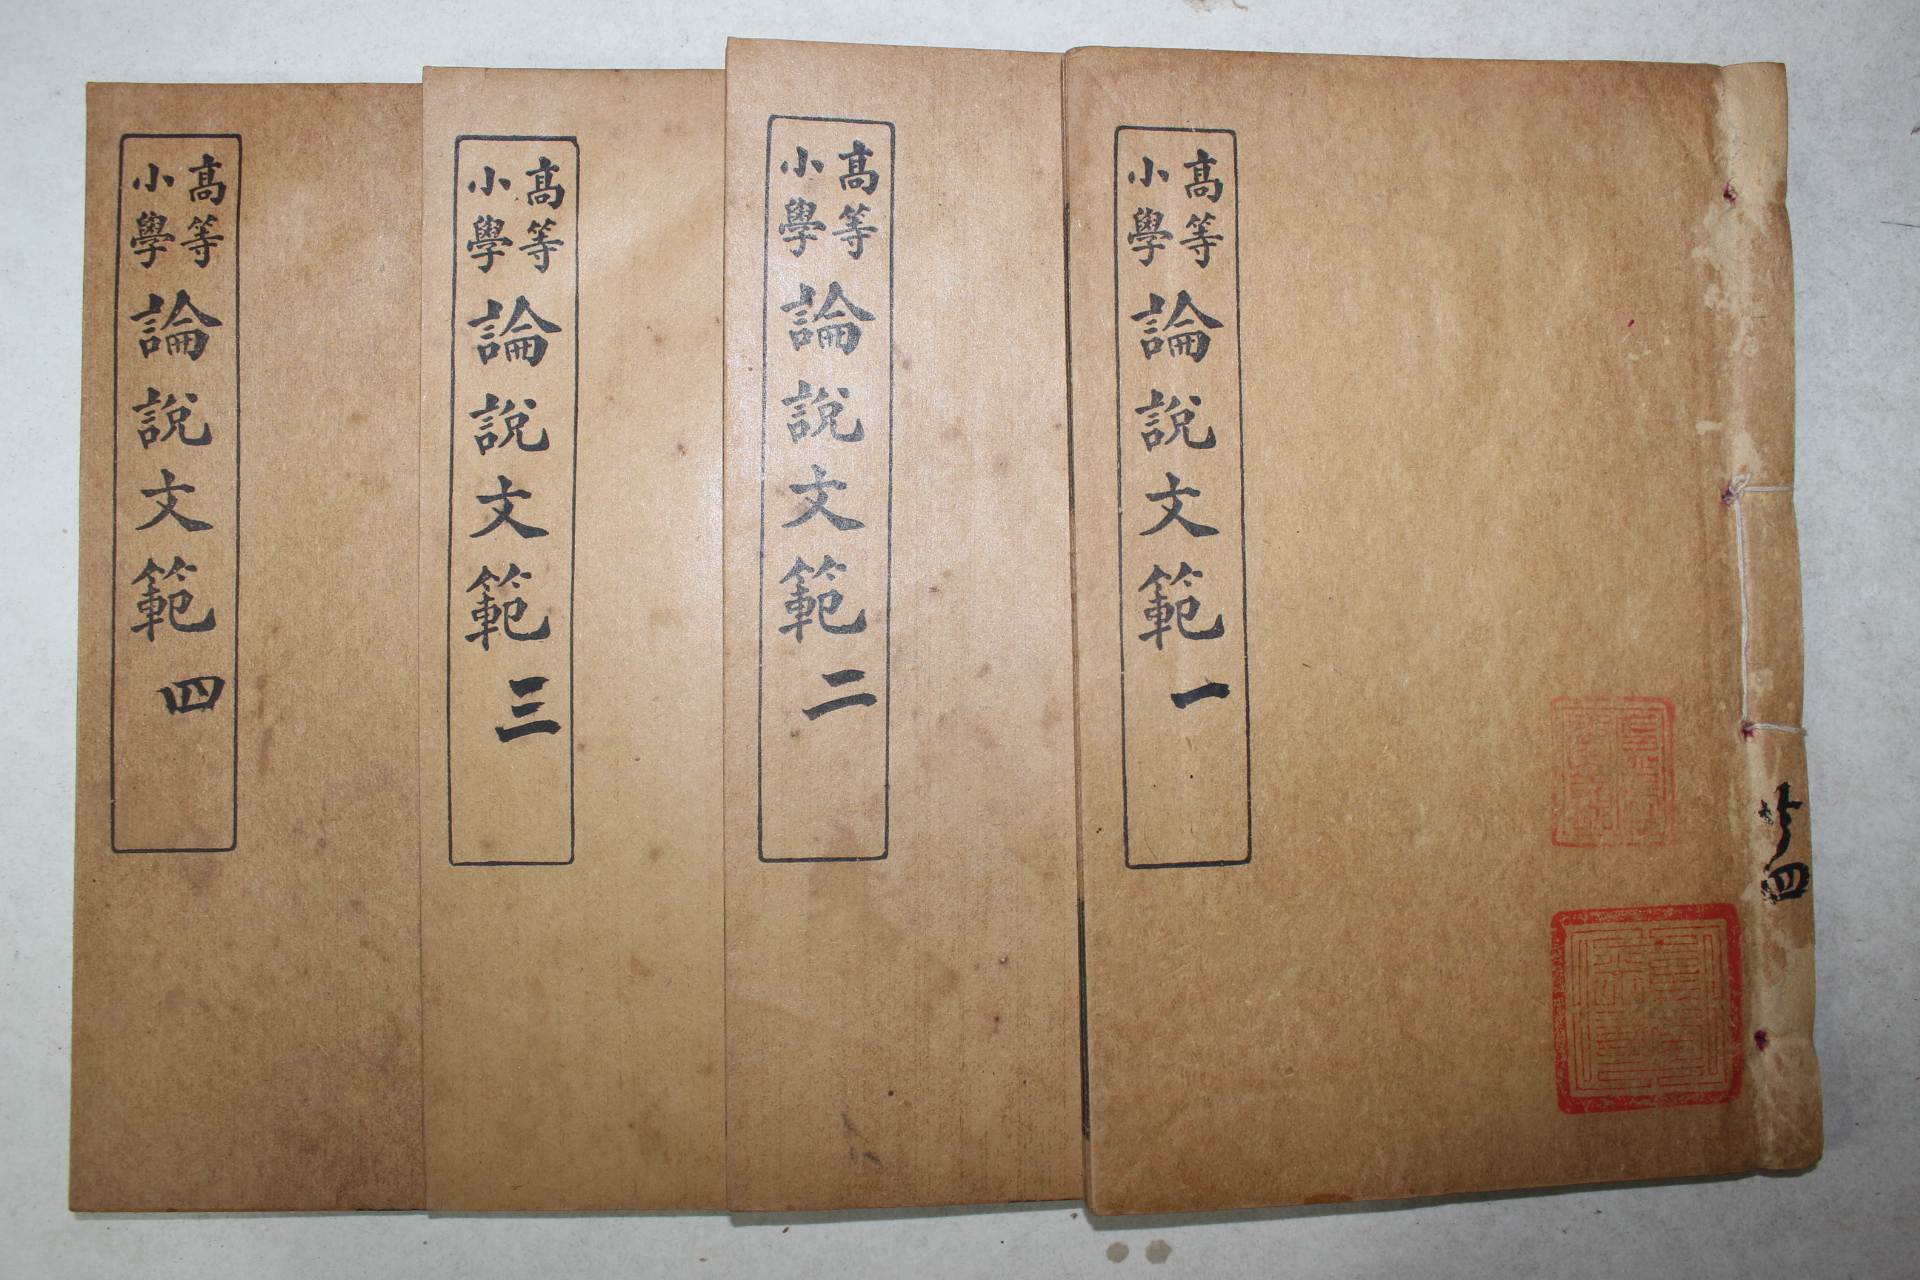 高等小學論說文範 一
高等小學論說文範 二
高等小學論說文範 三
高等小學論說文範 四
四